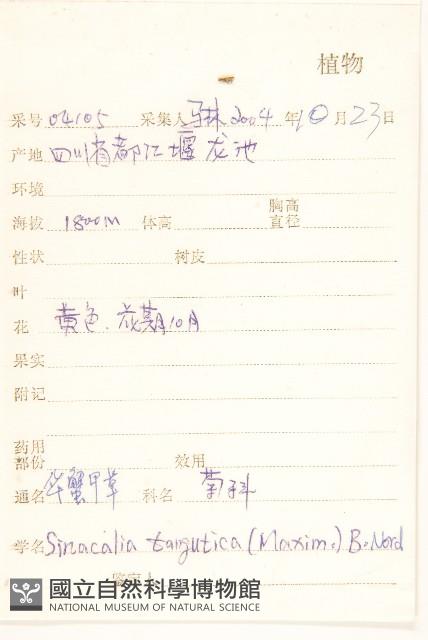 植物
采号 04105 采集人 马林 2004 年 10 月 23 日
产地 四川省都江堰龙池
环境
海拔 1800M 体高 胸高直径
性状 树皮
叶
花 黄色.花期10月
果实
附记
药用部份 效用
通名 华蟹甲草 科名 菊科
学名 Sinacalia tangutica (Maxim.) B. Nord
鉴定人
國立自然科學博物館
NATIONAL MUSEUM OF NATURAL SCIENCE